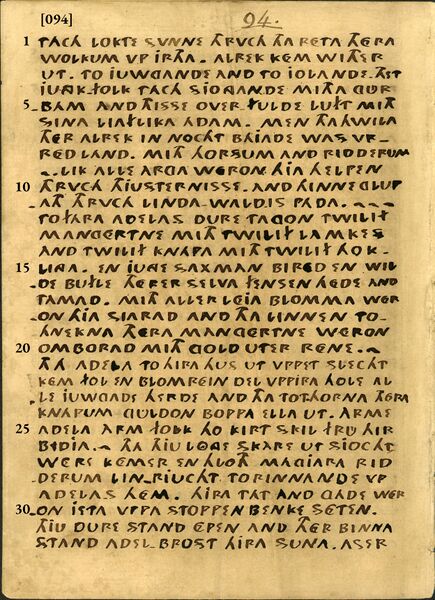 [094] 94.
1 TACH LOKTE SVNNE THRVCH THA RETA THERA
WOLKUM VP IRTHA. ALREK KEM WITHER
UT. TO IUWGANDE AND TO IOLANDE. THET
IUNGK FOLK TACH SIOGANDE MITH GUR
5 BAM AND THISSE OVERFULDE LUFT MITH
SINA LIAFLIKA ADAM. MEN THAHWILA
THER ALREK IN NOCHT BLIDE WAS VR-
RED LAND. MITH HORSUM AND RIDDERUM
LIK ALLE ARGA WERON. HIA HELPEN
10 THRVCH THIUSTERNISSE. AND HINNE GLUP
ATH THRVCH LINDA-WALDIS PADA.
TO FARA ADELAS DURE TAGON TWILIF
MANGERTNE MITH TWILIF LAMKES
AND TWILIF KNAPA MITH TWILIF HOK-
15 LIGA. EN IUNGE SAXMAN BIRED EN WIL
DE BUFLE THERER SELVA FENSEN HEDE AND
TAMAD. MITH ALLERLEIA BLOMMA WER
ON HIA SIARAD AND THA LINNEN TO-
HNEKNA THERA MANGERTNE WERON
20 OMBORAD MITH GOLD UTER RENE.
THA ADELA TO HIRA HUS UT VPPET SLECHT
KEM FOL EN BLOMREIN DEL VPPIRA HOLE AL
LE IUWGADE HERDE AND THA TOTHORNA THERA
KNAPUM GULDON BOPPA ELLA UT. ARME
25 ADELA ARM FOLK HO KIRT SKIL FRU HIR
BIDIA. THA THIU LONGE SKARE UT SIOCHT
WERE KEMER EN HLOTH MAGIARA RID
DERUM LIN-RIUCHT TO RINNANDE VP
ADELAS HEM. HIRA TAT AND GADE WER
30 ON IETA VPPA STOPPEN BENKE SETEN.
THIU DURE STAND EPEN AND THER BINNA
STAND ADEL-BROST HIRA SUNA. ASER